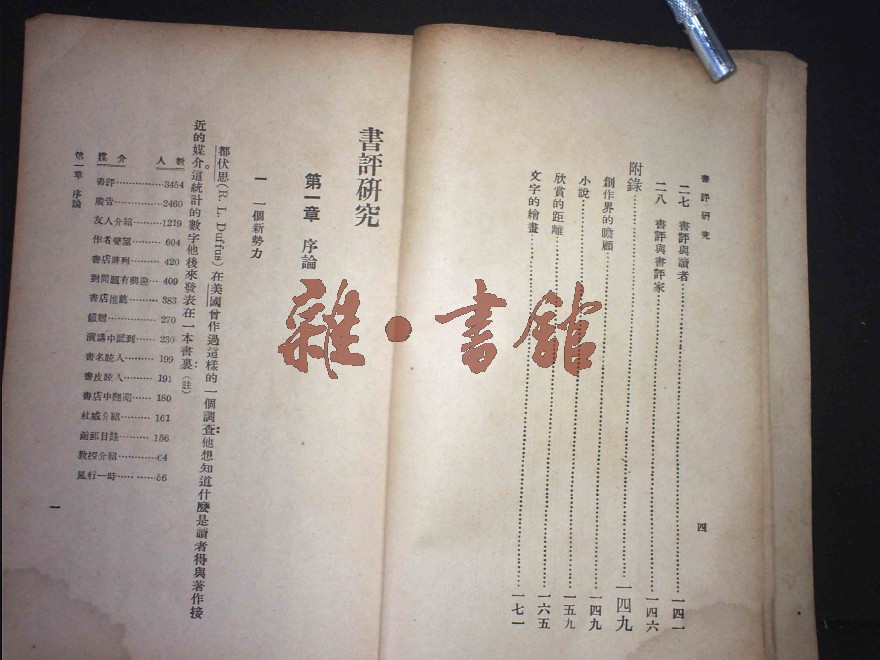 書評研究
二七 書評與讀者……一四一
二八 書評與書評家……一四六
附錄……一四九
創作界的瞻顧……一四九
小說……一五九
欣賞的距離……一六五
文字的繪畫……一七一
四
書評研究
第一章 序論
一 一個新勢力
都伏思(R. L. Duffus)在美國曾作過這樣的一個調查:他想知道什麼是讀者得與著作接
近的媒介。這統計的數字他後來發表在一本書裏(註)
媒介 人數
書評……3454
廣告……2460
友人介紹……1219
作者聲望……604
書店陳列……420
對問題有興趣……409
書店推薦……383
餽贈……270
演講中認到……230
書名誘人……199
書皮誘人……191
書店中翻閱……180
杜威介紹……161
函郵目錄……156
教授介紹……64
風行一時……56
第一章 序論
一
雜·書館